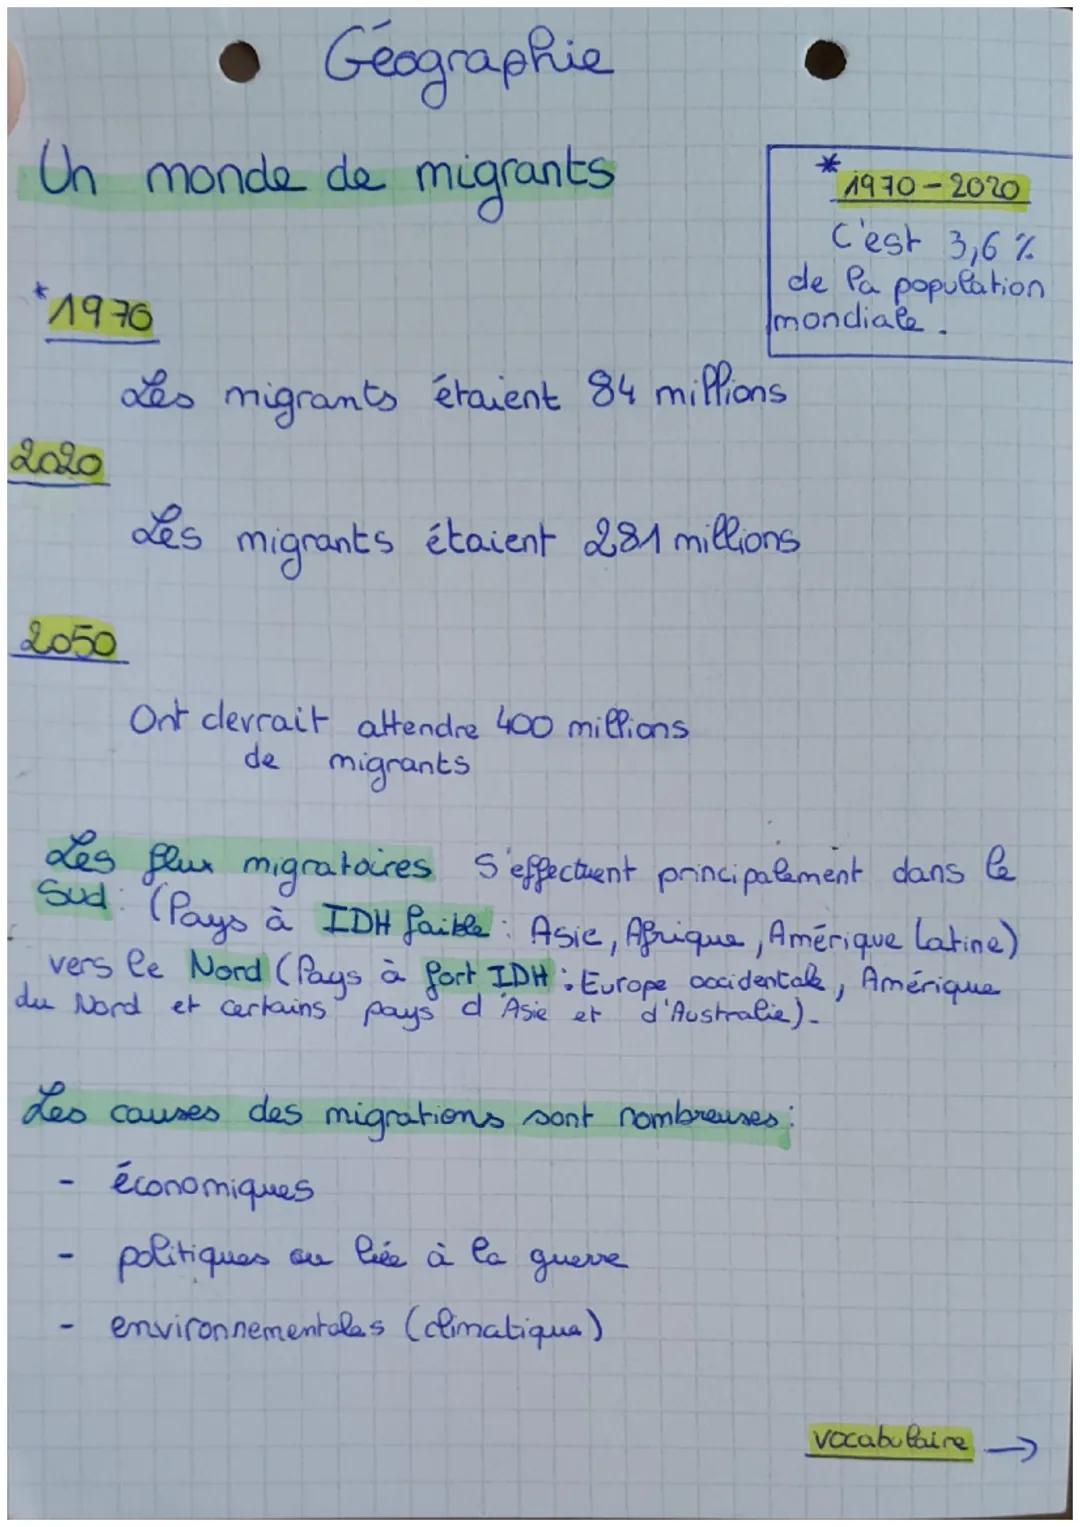 Géographie
Un monde de migrants
* 1970-2020
C'est 3,6 %
de la population
mondiale.
*1970
Les migrants étaient 84 millions
2020
Les migrants étaient 281 millions
2050
Ont devrait attendre 400 millions
de migrants
Les flux migratoires s'effectuent principalement dans le
Sud : (Pays à IDH faible : Asie, Afrique, Amérique Latine)
vers le Nord (Pays à fort IDH : Europe occidentale, Amérique
du Nord et certains pays d'Asie et d'Australie).
Les causes des migrations sont nombreuses :
- économiques
- politiques ou liée à la guerre
- environnementales (climatique)
vocabulaire →